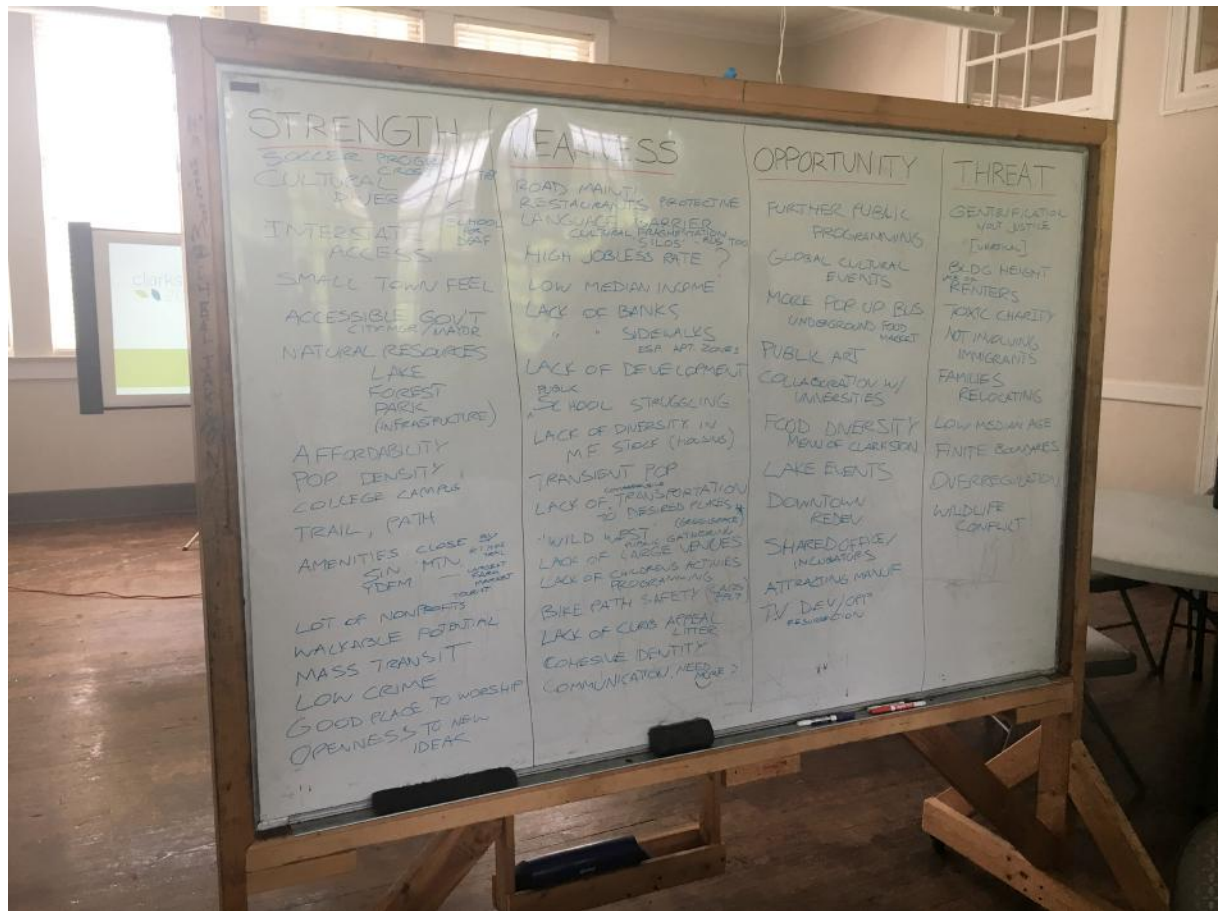 STRENGTH
SOCCER PROGRAM
CULTURAL
DIVERSITY
INTERSTATE
ACCESS
SCHOOL
FOR
DEAF
SMALL TOWN FEEL
ACCESSIBLE GOV'T
CITY MGR/MAYOR
NATURAL RESOURCES
LAKE
FOREST
PARK
(INFRASTRUCTURE)
AFFORDABILITY
POP DENSITY
COLLEGE CAMPUS
TRAIL, PATH
AMENITIES CLOSE BY
STN MTN
YDFM — LARGEST
FARM
MARKET
TOURIST
LOT OF NONPROFITS
WALKABLE POTENTIAL
MASS TRANSIT
LOW CRIME
GOOD PLACE TO WORSHIP
OPENNESS TO NEW
IDEAS
WEAKNESS
ROAD MAINT.
RESTAURANTS PROTECTIVE
LANGUAGE BARRIER
CULTURAL FRAGMENTATION
"SILOS" - BUS TOO
HIGH JOBLESS RATE ?
LOW MEDIAN INCOME
LACK OF BANKS
" " SIDEWALKS
ESP. APT. ZONES
LACK OF DEVELOPMENT
PUBLIC
SCHOOL STRUGGLING
LACK OF DIVERSITY IN
M.F. STOCK (HOUSING)
TRANSIENT POP
LACK OF TRANSPORTATION
TO DESIRED PLACES
(GREENSPACE)
"WILD WEST"
PUBLIC GATHERING
LACK OF LARGE VENUES
LACK OF CHILDRENS ACTIVIES
PROGRAMING
BIKE PATH SAFETY
LACK OF CURB APPEAL
LITTER
COHESIVE IDENTITY
COMMUNICATION NEED
MORE?
OPPORTUNITY
FURTHER PUBLIC
PROGRAMMING
GLOBAL CULTURAL
EVENTS
MORE POP UP BUS
UNDERGROUND FOOD
MARKET
PUBLIC ART
COLLABORATION W/
UNIVERSITIES
FOOD DIVERSITY
MENU OF CLARKSTON
LAKE EVENTS
DOWNTOWN
REDEV
SHARED OFFICE/
INCUBATORS
ATTRACTING MANUF
T.V. DEV/OPP
THREAT
GENTRIFICATION
W/OUT JUSTICE
[VERTICAL]
BLDG HEIGHT
RENTERS
TOXIC CHARITY
NOT INVOLVING
IMMIGRANTS
FAMILIES
RELOCATING
LOW MEDIAN AGE
FINITE BOUNDARIES
OVERREGULATION
WILDLIFE
CONFLICT
clarks